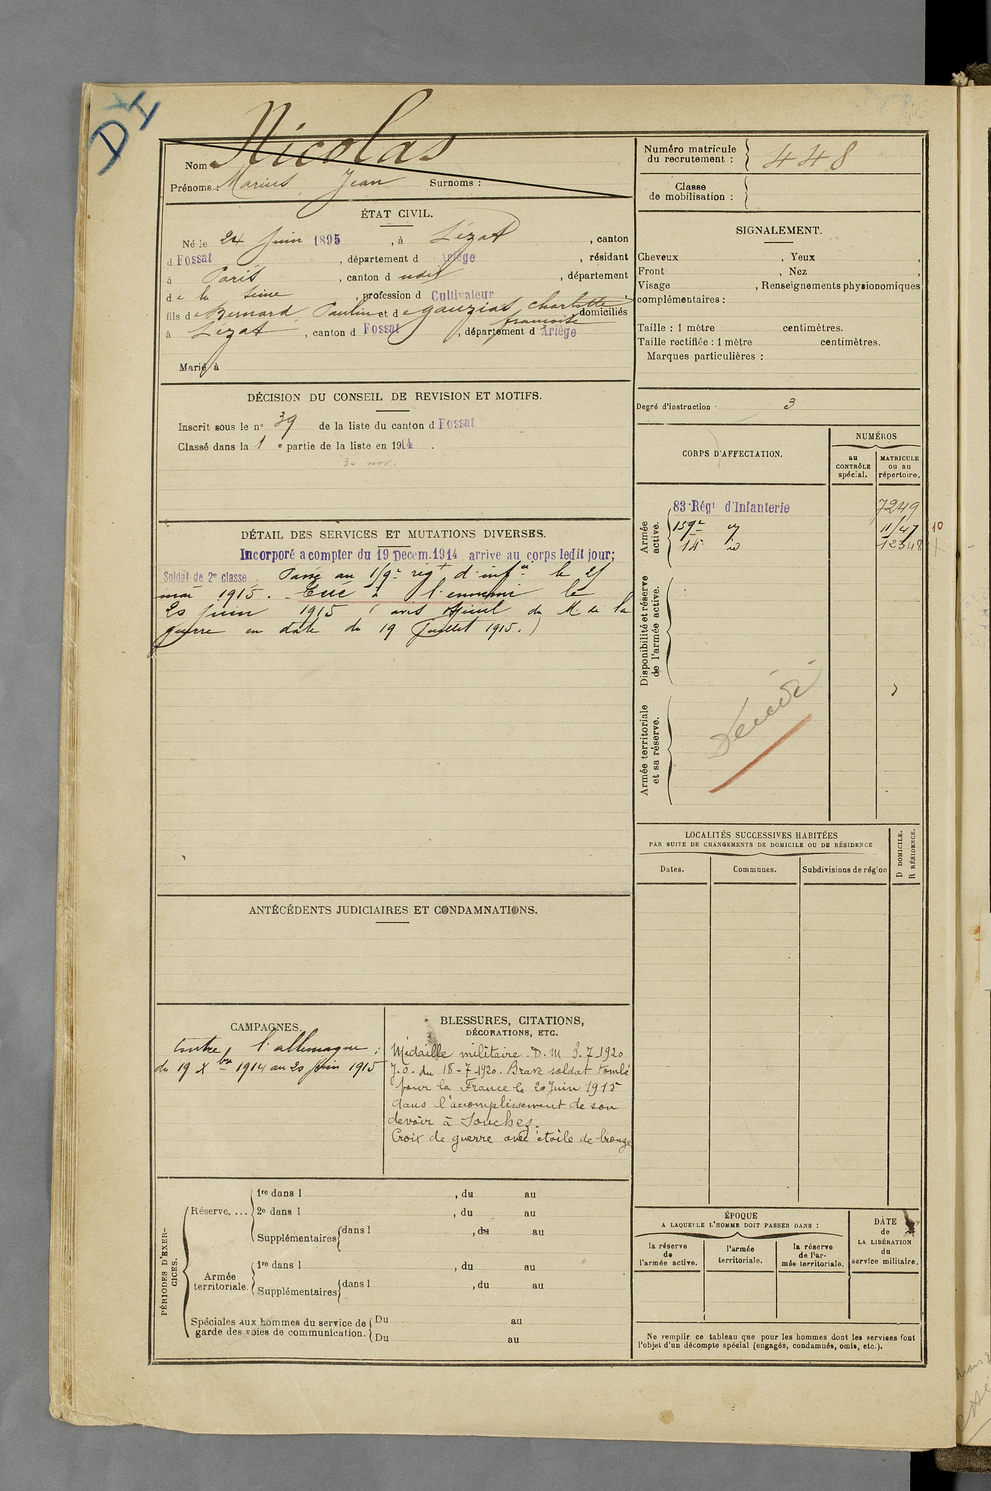 DI
Nom Nicolas
Prénoms : Marius Jean Surnoms :
Numéro matricule
du recrutement : 448
Classe
de mobilisation :
ÉTAT CIVIL.
Né le 24 Juin 1895, à Lézat, canton
d Fossat, département d Ariège, résidant
à Paris, canton d udit, département
de la Seine, profession d Cultivateur
fils de Bernard, Paulin et de Gauzios, Charlotte domiciliés
françoise
à Lézat, canton d Fossat, département d Ariège
Marié à
SIGNALEMENT.
Cheveux , Yeux ,
Front , Nez ,
Visage , Renseignements physionomiques
complémentaires :
Taille : 1 mètre centimètres.
Taille rectifiée : 1 mètre centimètres.
Marques particulières :
Degré d'instruction : 3
DÉCISION DU CONSEIL DE REVISION ET MOTIFS.
Inscrit sous le n° 39 de la liste du canton d Fossat
Classé dans la 1 e partie de la liste en 1914.
CORPS D'AFFECTATION.
NUMÉROS
au
CONTRÔLE
spécial.
MATRICULE
ou au
répertoire.
Armée
active.
83 Régt d'Infanterie 7249
159e 11/47 10
14e 12348
Disponibilité et réserve
de l'armée active.
Armée territoriale
et sa réserve.
Décédé
DÉTAIL DES SERVICES ET MUTATIONS DIVERSES.
Incorporé a compter du 19 Decem. 1914 arrivé au corps ledit jour;
Soldat de 2e classe. Passé au 159e regt d'infie le 25
mai 1915. Tué à l'ennemi le
20 juin 1915 (avis officiel du M. de la
guerre en date du 19 Juillet 1915.)
LOCALITÉS SUCCESSIVES HABITÉES
PAR SUITE DE CHANGEMENTS DE DOMICILE OU DE RÉSIDENCE
D DOMICILE.
R RÉSIDENCE.
Dates.
Communes.
Subdivisions de région
ANTÉCÉDENTS JUDICIAIRES ET CONDAMNATIONS.
CAMPAGNES.
Contre l'allemagne :
du 19 Xbre 1914 au 20 juin 1915
BLESSURES, CITATIONS,
DÉCORATIONS, ETC.
Médaille militaire. D. M 3.7.1920
J. O. du 18-7-1920. Brave soldat tombé
pour la France le 20 Juin 1915
dans l'accomplissement de son
devoir à Souchez.
Croix de guerre avec étoile de bronze
PÉRIODES D'EXER-
CICES.
Réserve. ....
1re dans l , du au
2e dans l , du au
Supplémentaires dans l , du au
Armée
territoriale.
1re dans l , du au
Supplémentaires dans l , du au
Spéciales aux hommes du service de
garde des voies de communication.
Du au
Du au
ÉPOQUE
A LAQUELLE L'HOMME DOIT PASSER DANS :
la réserve
de
l'armée active.
l'armée
territoriale.
la réserve
de l'ar-
mée territoriale.
DATE
de
LA LIBÉRATION
du
service militaire.
Ne remplir ce tableau que pour les hommes dont les services font
l'objet d'un décompte spécial (engagés, condamnés, omis, etc.).